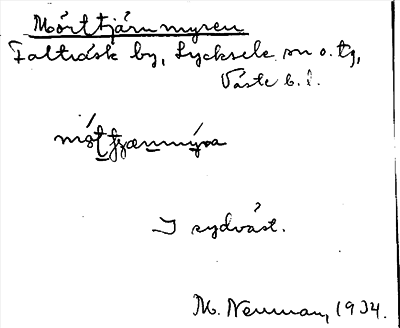 Mörttjärnmyren
Falträsk by, Lycksele sn o. tg,
Väste b. l.
I sydväst.
M. Neuman, 1934.